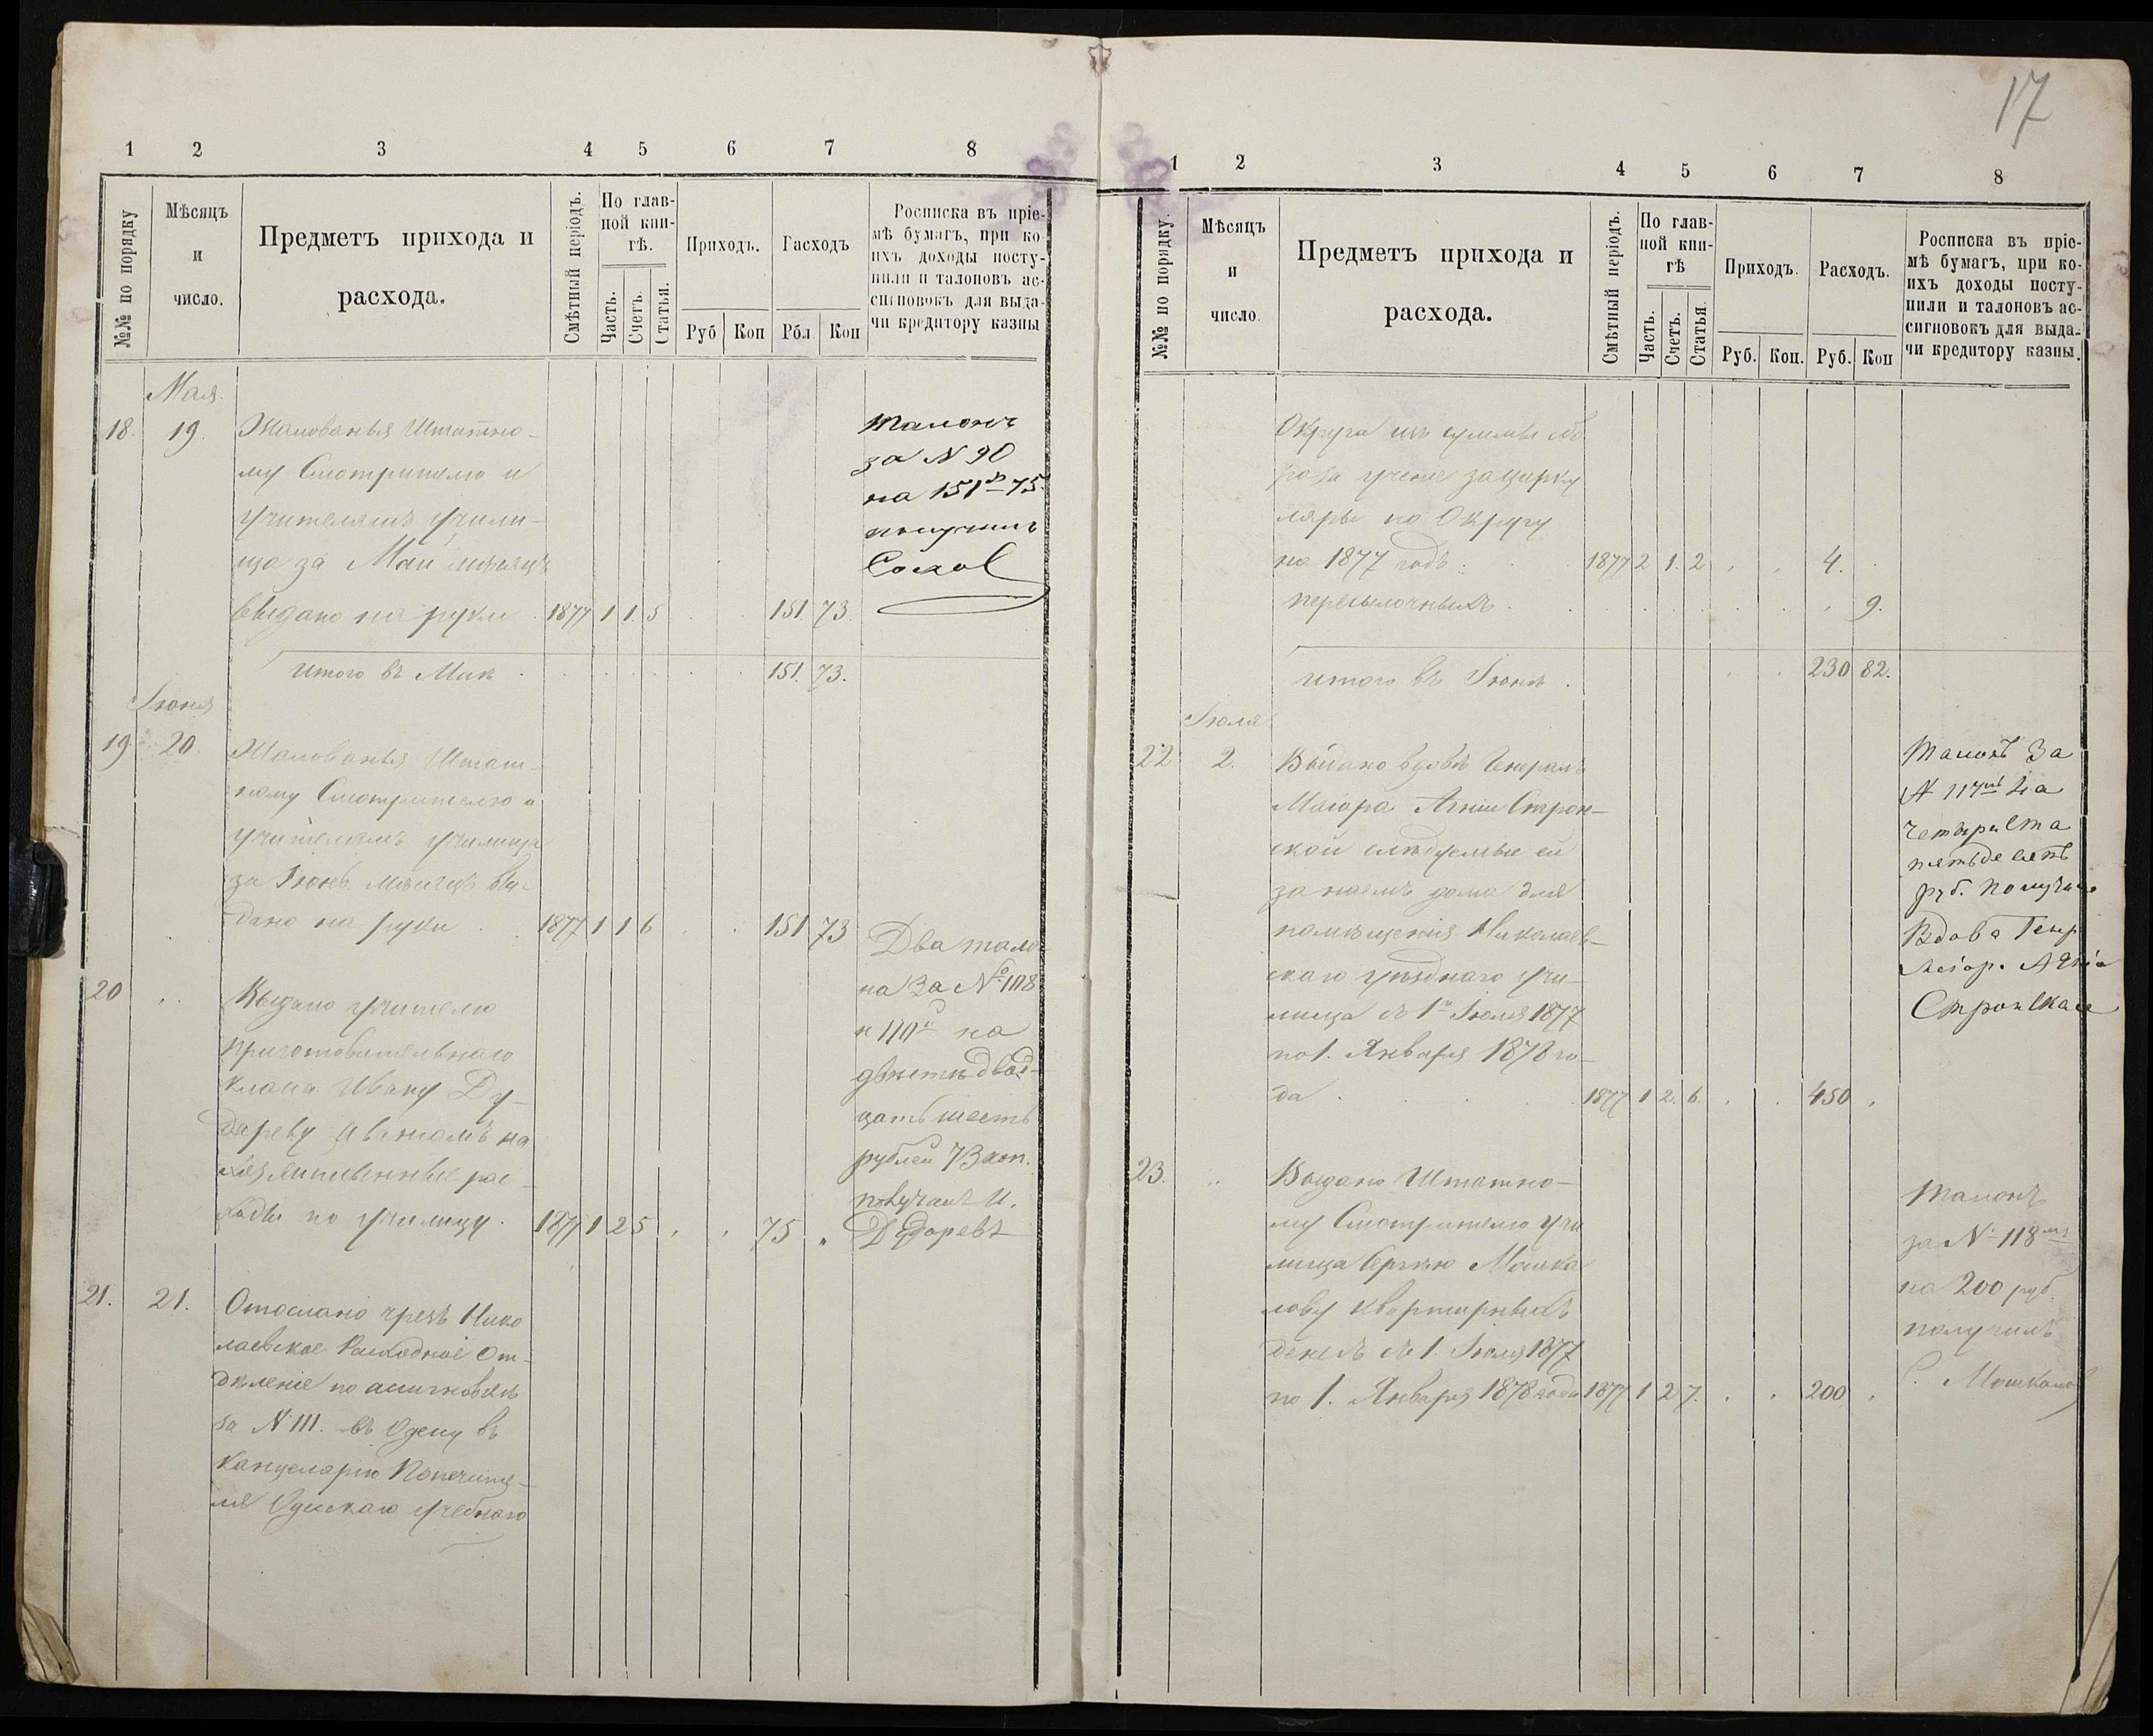 17
1 2 3 4 5 6 7 8
№№ по порядку
Мѣсяцъ
и
число.
Предметъ прихода и
расхода.
Смѣтный періодъ.
По глав-
ной кни-
гѣ.
Часть.
Счетъ.
Статья.
Приходъ.
Расходъ
Руб Коп Рбл Коп
Росписка въ пріе-
мѣ бумагъ, при ко-
ихъ доходы посту-
пили и талоновъ ас-
сигновокъ для выда-
чи кредитору казны
Мая.
18. 19. Жалованья Штатно-
му Смотрителю и
учителямъ учили-
ща за Май мѣсяцъ
выдано на руки 1877 1 1. 5 151 73.
Талонъ
за N 90
на 151 р 75
получилъ
итого въ Маѣ 151. 73.
Іюня
19 20. Жалованья Штат-
ному Смотрителю и
учителямъ училища
за Іюнь мѣсяцъ вы-
дано на руки 1877 1 1 6 151 73
20 Выдано учителю
приготовительнаго
класса Ивану Ду-
дареву авансомъ на
хозяйственные рас-
ходы по училищу. 1877 1 2 5 75 "
Два тало-
на за № 108
и 110 на
двѣсти двад-
цать шесть
рублей 73 коп.
получилъ И.
Дударевъ
21. 21. Отослано чрезъ Нико
лаевское Расходное От-
дѣленіе по ассигновкѣ
за N 111. въ Одессу въ
Канцелярію Попечите-
ля Одесскаго учебнаго
1 2 3 4 5 6 7 8
№№ по порядку.
Мѣсяцъ
и
число.
Предметъ прихода и
расхода.
Смѣтный періодъ.
По глав-
ной кни-
гѣ
Часть.
Счетъ.
Статья.
Приходъ.
Расходъ.
Руб. Коп. Руб. Коп
Росписка въ пріе-
мѣ бумагъ, при ко-
ихъ доходы посту-
пили и талоновъ ас-
сигновокъ для выда-
чи кредитору казны.
Округа изъ суммы сбо
ра за ученіе за цирку
ляры по Округу
на 1877 годъ 1877 2 1. 2 4.
пересылочныхъ 9.
итого въ Іюнѣ 230 82.
Іюля
22 2. Выдано вдовѣ Генералъ
Маіора Агніи Строи-
ской слѣдуемые ей
за наемъ дома для
помѣщенія Николаев-
скаго уѣзднаго учи-
лища съ 1го Іюля 1877
по 1. Января 1878 го-
да 1877 1 2. 6. 450
Талонъ За
N 117 На
четыреста
пятьдесятъ
руб. Получила
Вдова Генр
Маіор. Агнія
23. " Выдано Штатно-
му Смотрителю учи
лища Сергѣю Машка
лову квартирныхъ
денегъ съ 1. Іюля 1877
по 1. Января 1878 года 1877 1 2 7. 200
Талонъ
за № 118
на 200 руб.
получилъ
С. Машкаловъ